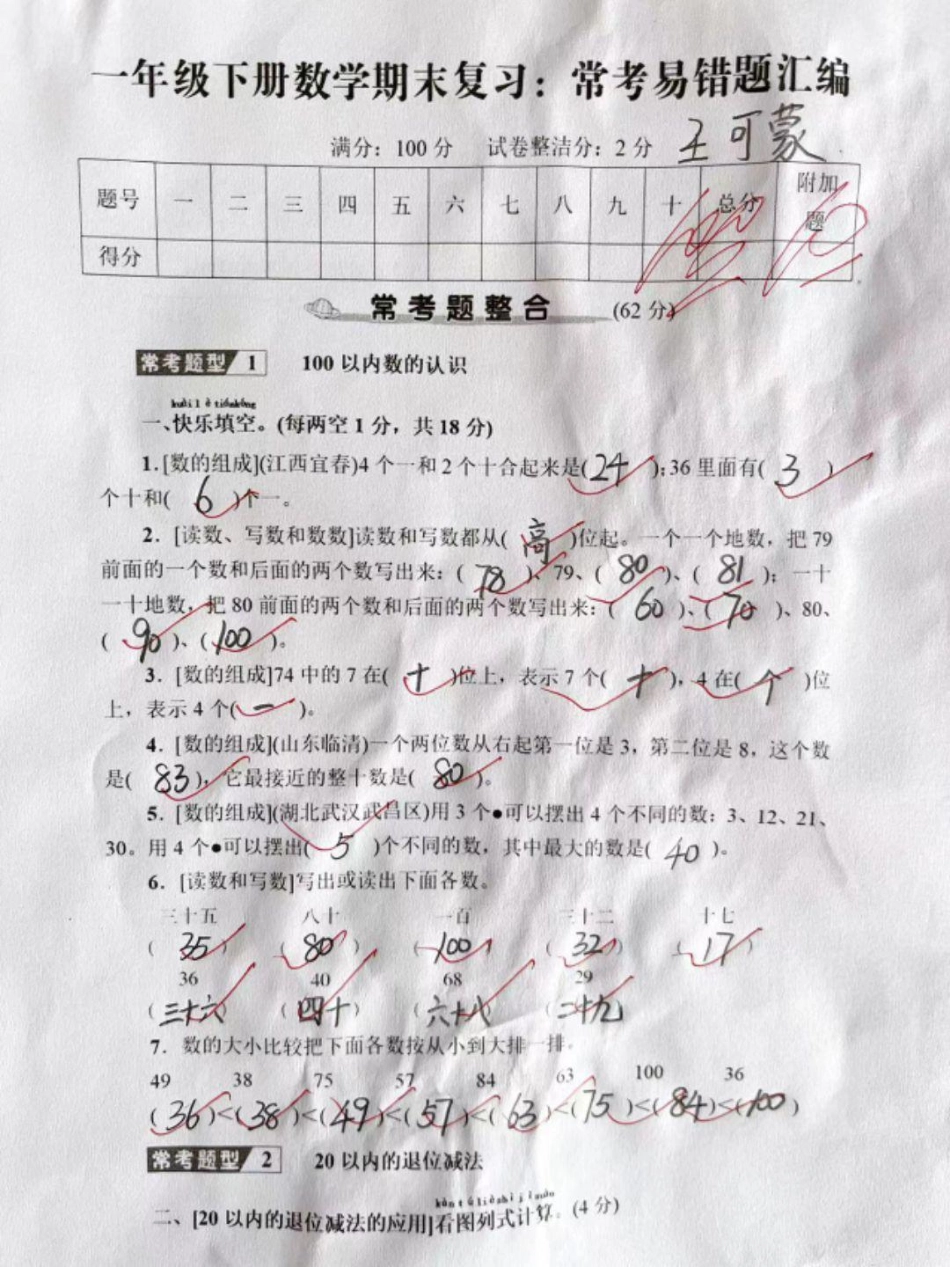 一年级下册数学期末复习：常考易错题汇编
满分：100分 试卷整洁分：2分 王可蒙
题号 一 二 三 四 五 六 七 八 九 十 总分 附加题
得分
常考题整合 (62分)
常考题型 1 100以内数的认识
kuài lè tián kòng
一、快乐填空。(每两空1分，共18分)
1.[数的组成](江西宜春)4个一和2个十合起来是(24);36里面有(3)
个十和(6)个一。
2.[读数、写数和数数]读数和写数都从(高)位起。一个一个地数，把79
前面的一个数和后面的两个数写出来：(78)、79、(80)、(81)；一十
一十地数，把80前面的两个数和后面的两个数写出来：(60)、(70)、80、
(90)、(100)。
3.[数的组成]74中的7在(十)位上，表示7个(十)，4在(个)位
上，表示4个(一)。
4.[数的组成](山东临清)一个两位数从右起第一位是3，第二位是8，这个数
是(83)，它最接近的整十数是(80)。
5.[数的组成](湖北武汉武昌区)用3个●可以摆出4个不同的数：3、12、21、
30。用4个●可以摆出(5)个不同的数，其中最大的数是(40)。
6.[读数和写数]写出或读出下面各数。
三十五 八十 一百 三十二 十七
(35) (80) (100) (32) (17)
36 40 68 29
(三十六) (四十) (六十八) (二十九)
7.数的大小比较把下面各数按从小到大排一排。
49 38 75 57 84 63 100 36
(36)<(38)<(49)<(57)<(63)<(75)<(84)<(100)
常考题型 2 20以内的退位减法
kàn tú liè shì jì suàn
二、[20以内的退位减法的应用]看图列式计算。(4分)